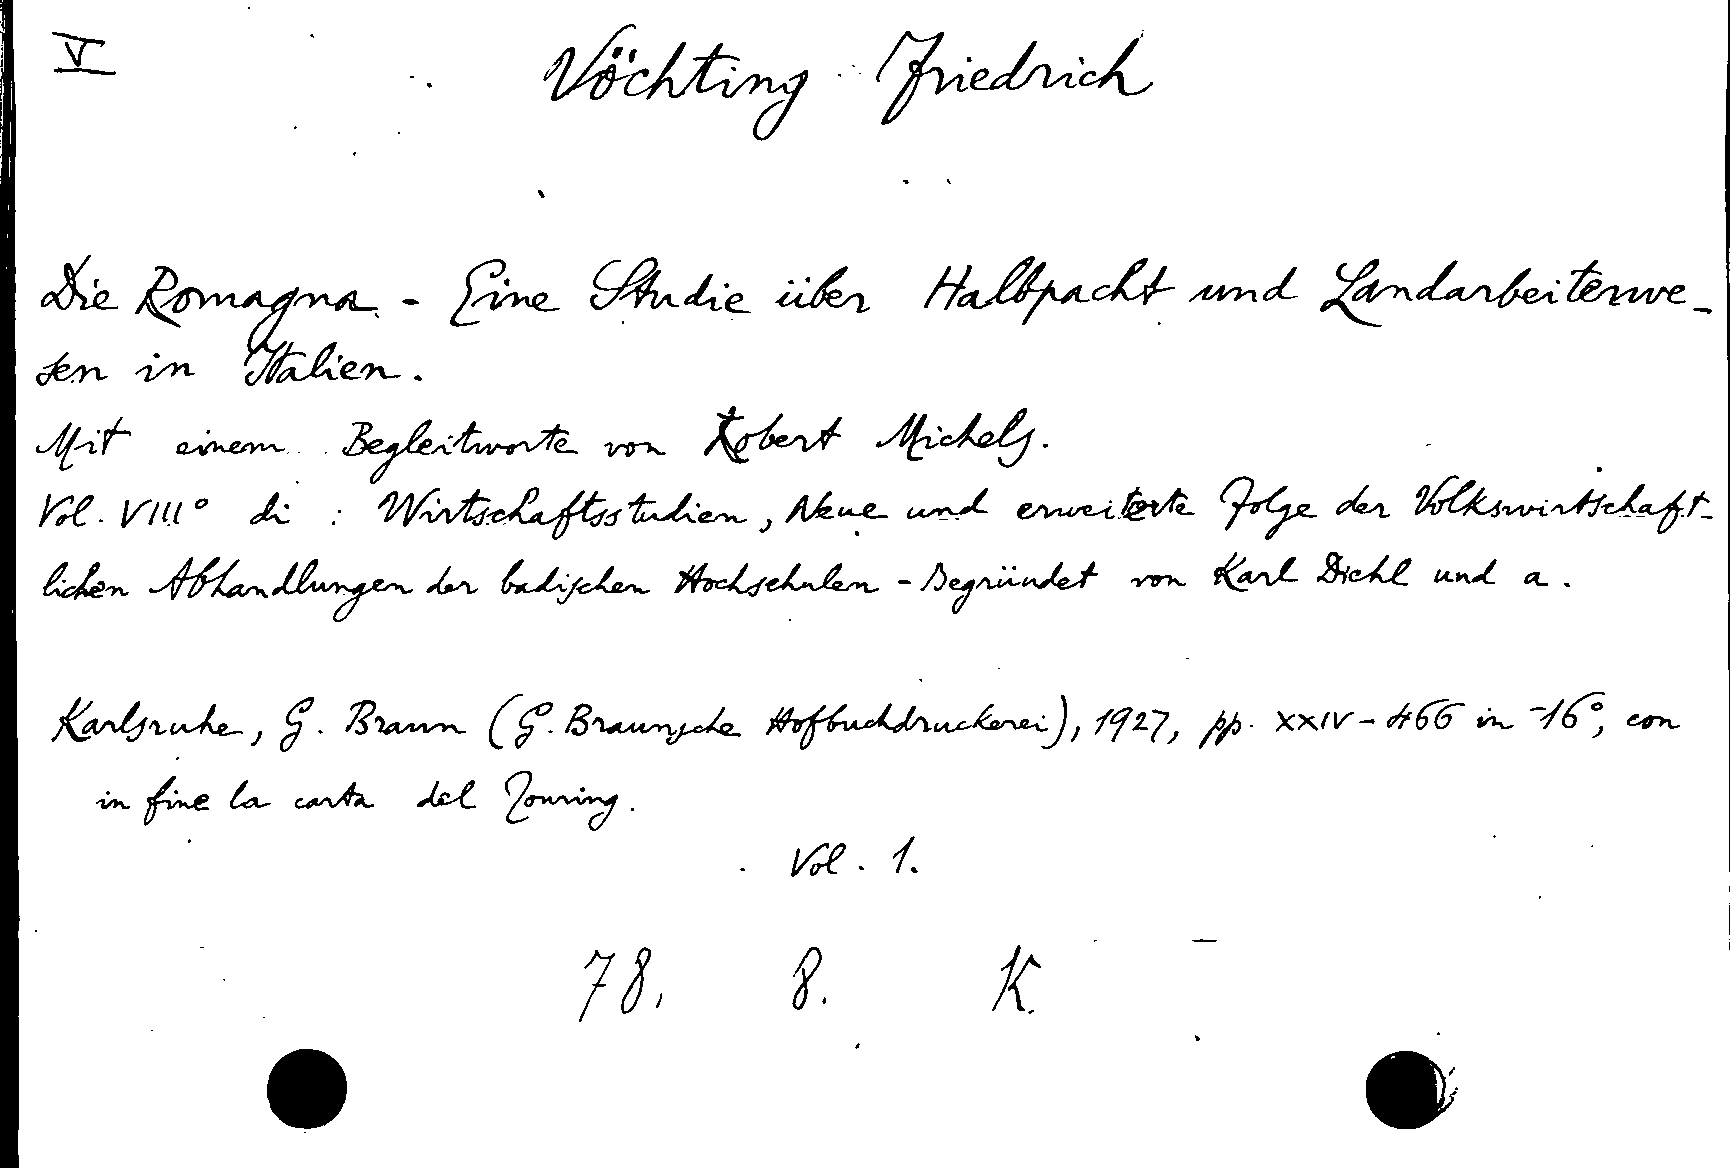 V
Vöchting Friedrich
Die Romagna - Eine Studie über Halbpacht und Landarbeiterwe-
sen in Italien.
Mit einem Begleitworte von Robert Michels.
Vol. VIII° di : Wirtschaftsstudien, Neue und erweiterte Folge der Volkswirtschaft-
lichen Abhandlungen der badischen Hochschulen - Begründet von Karl Diehl und a.
Karlsruhe, G. Braun (G. Braunsche Hofbuchdruckerei), 1927, pp. XXIV - 466 in -16°, con
in fine la carta del Touring.
Vol. 1.
78. 8. K.